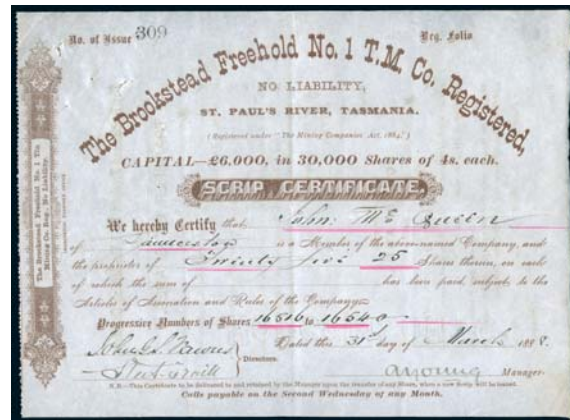 No. of Issue 309 Reg. Folio
The Brookstead Freehold No. 1 T.M. Co. Registered,
NO LIABILITY,
ST. PAUL'S RIVER, TASMANIA.
(Registered under "The Mining Companies Act, 1884.")
CAPITAL—£6,000, in 30,000 Shares of 4s. each.
SCRIP CERTIFICATE.
We hereby Certify that John Mc Queen
of Launceston is a Member of the above-named Company, and
the proprietor of Twenty five 25 Shares therein, on each
of which the sum of has been paid, subject to the
Articles of Association and Rules of the Company.
Progressive Numbers of Shares 16516 to 16540
Dated this 31st day of March 1888.
Directors.
AYoung Manager.
N.B.—This Certificate to be delivered to and retained by the Manager upon the transfer of any Share, when a new Scrip will be issued.
Calls payable on the Second Wednesday of any Month.
The Brookstead Freehold No. 1 Tin
Mining Co. Reg., No Liability.